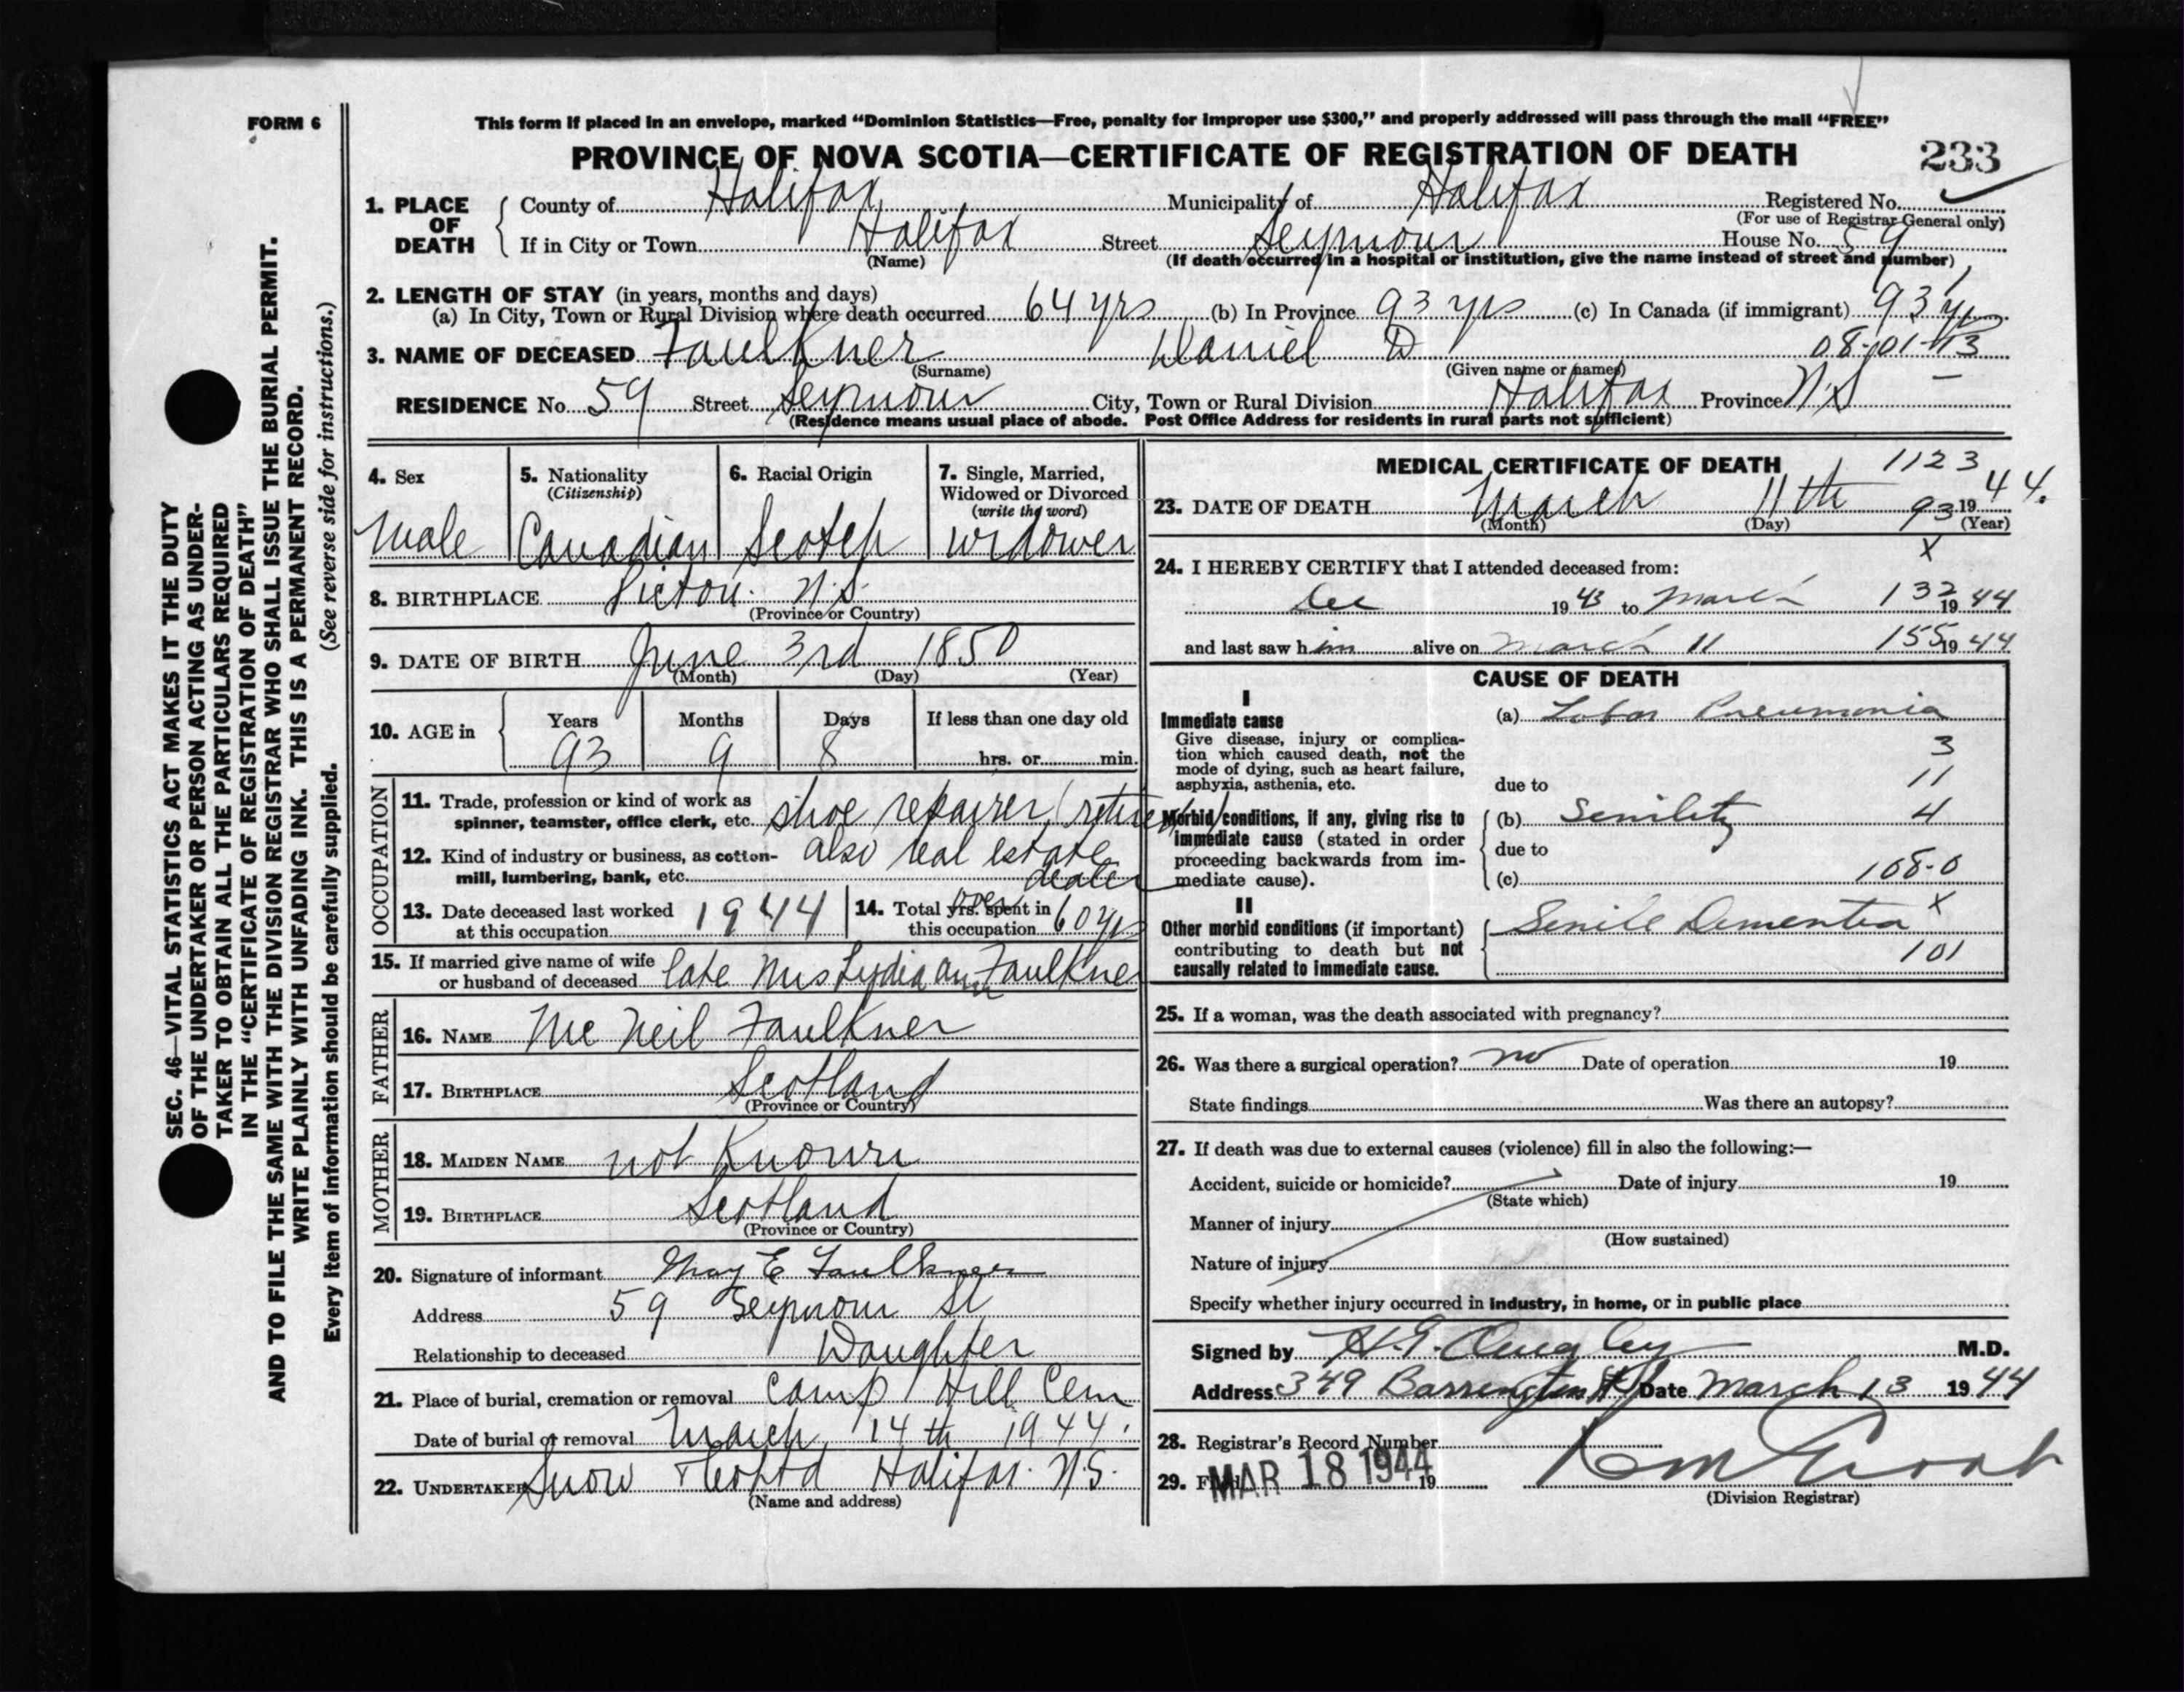 FORM 6
This form if placed in an envelope, marked “Dominion Statistics—Free, penalty for improper use $300,” and properly addressed will pass through the mail “FREE”
PROVINCE OF NOVA SCOTIA—CERTIFICATE OF REGISTRATION OF DEATH 233
1. PLACE OF DEATH County of Halifax Municipality of Halifax Registered No.
(For use of Registrar General only)
If in City or Town Halifax Street Seymour House No. 59
(Name) (If death occurred in a hospital or institution, give the name instead of street and number)
2. LENGTH OF STAY (in years, months and days)
(a) In City, Town or Rural Division where death occurred 64 yrs (b) In Province 93 yrs (c) In Canada (if immigrant) 93 yrs
3. NAME OF DECEASED Faulkner Daniel D 08-01-13
(Surname) (Given name or names)
RESIDENCE No. 59 Street Seymour City, Town or Rural Division Halifax Province N.S
(Residence means usual place of abode. Post Office Address for residents in rural parts not sufficient)
4. Sex
Male
5. Nationality
(Citizenship)
Canadian
6. Racial Origin
Scotch
7. Single, Married,
Widowed or Divorced
(write the word)
Widower
8. BIRTHPLACE Pictou. N.S.
(Province or Country)
9. DATE OF BIRTH June 3rd 1850
(Month) (Day) (Year)
10. AGE in Years Months Days If less than one day old
93 9 8 hrs. or min.
OCCUPATION
11. Trade, profession or kind of work as
spinner, teamster, office clerk, etc. shoe repairer (retired)
12. Kind of industry or business, as cotton-
mill, lumbering, bank, etc. also real estate
dealer
13. Date deceased last worked
at this occupation 1944
14. Total yrs. spent in
this occupation 60 yrs
15. If married give name of wife
or husband of deceased late Mrs Lydia ann Faulkner
FATHER
16. NAME Mc Neil Faulkner
17. BIRTHPLACE Scotland
(Province or Country)
MOTHER
18. MAIDEN NAME not Known
19. BIRTHPLACE Scotland
(Province or Country)
20. Signature of informant May E Faulkner
Address 59 Seymour St
Relationship to deceased Daughter
21. Place of burial, cremation or removal Camp Hill Cem
Date of burial or removal March 14th 1944
22. UNDERTAKER Snow & Co Ltd Halifax. N.S.
(Name and address)
MEDICAL CERTIFICATE OF DEATH 1123
23. DATE OF DEATH March 11th 1944.
(Month) (Day) 93 (Year)
X
24. I HEREBY CERTIFY that I attended deceased from:
Dec 1943 to March 132 1944
and last saw him alive on March 11 155 1944
CAUSE OF DEATH
I
Immediate cause
Give disease, injury or complica-
tion which caused death, not the
mode of dying, such as heart failure,
asphyxia, asthenia, etc.
(a) Lobar Pneumonia
3
due to 11
Morbid conditions, if any, giving rise to
immediate cause (stated in order
proceeding backwards from im-
mediate cause).
(b) Senility 4
due to
(c) 108-0
II
Other morbid conditions (if important)
contributing to death but not
causally related to immediate cause.
Senile Dementia X
101
25. If a woman, was the death associated with pregnancy?
26. Was there a surgical operation? no Date of operation 19
State findings Was there an autopsy?
27. If death was due to external causes (violence) fill in also the following:—
Accident, suicide or homicide? Date of injury 19
(State which)
Manner of injury
(How sustained)
Nature of injury
Specify whether injury occurred in industry, in home, or in public place
Signed by M.D.
Address 349 Barrington St Date March 13 1944
28. Registrar's Record Number
29. Filed MAR 18 1944 19
(Division Registrar)
SEC. 46—VITAL STATISTICS ACT MAKES IT THE DUTY
OF THE UNDERTAKER OR PERSON ACTING AS UNDER-
TAKER TO OBTAIN ALL THE PARTICULARS REQUIRED
IN THE “CERTIFICATE OF REGISTRATION OF DEATH”
AND TO FILE THE SAME WITH THE DIVISION REGISTRAR WHO SHALL ISSUE THE BURIAL PERMIT.
WRITE PLAINLY WITH UNFADING INK. THIS IS A PERMANENT RECORD.
Every item of information should be carefully supplied. (See reverse side for instructions.)